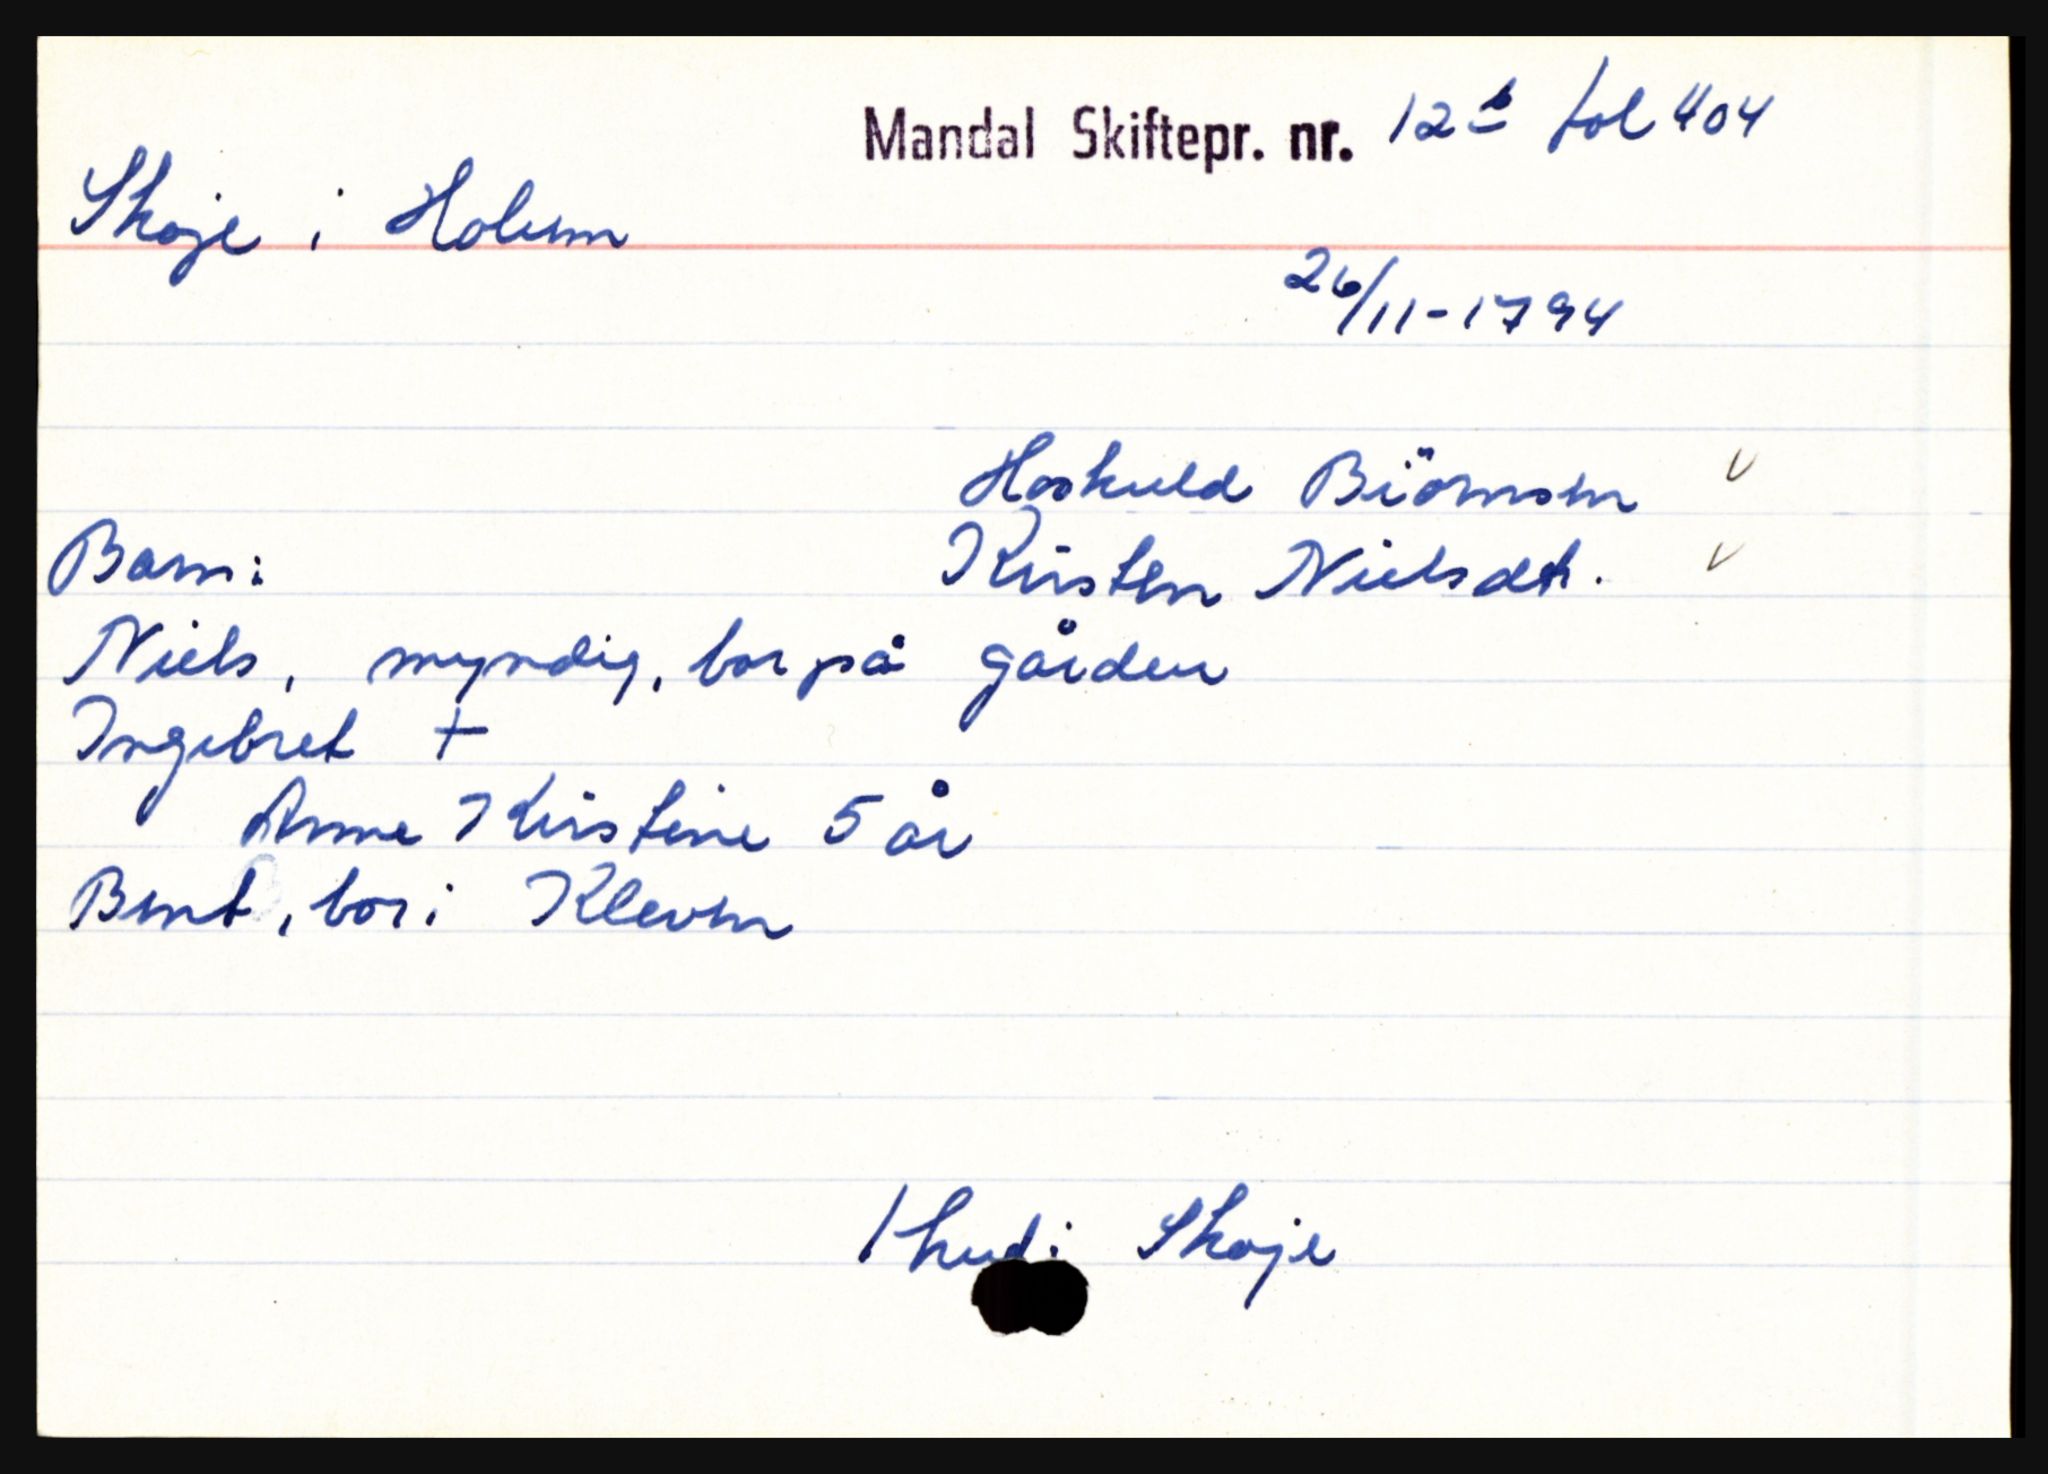 Mandal Skiftepr. nr. 12b fol 404
Skoje i Holum
26/11-1794
Hoskuld Biörnsen v
Barn: Kirsten Nielsdt. v
Niels, myndig, bor på gården
Ingebret +
Anne Kirstine 5 år
Bent, bor i Kleven
1 hud i Skoje